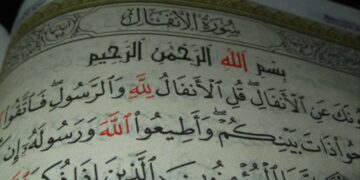 سُورَةُ الْأَنْفَالِ
بِسْمِ اللَّهِ الرَّحْمَٰنِ الرَّحِيمِ
نَكَ عَنِ الْأَنْفَالِ ۖ قُلِ الْأَنْفَالُ لِلَّهِ وَالرَّسُولِ ۖ فَاتَّقُوا
ذَاتَ بَيْنِكُمْ ۖ وَأَطِيعُوا اللَّهَ وَرَسُولَهُ إِن
الَّذِينَ إِذَا ذُكِرَ